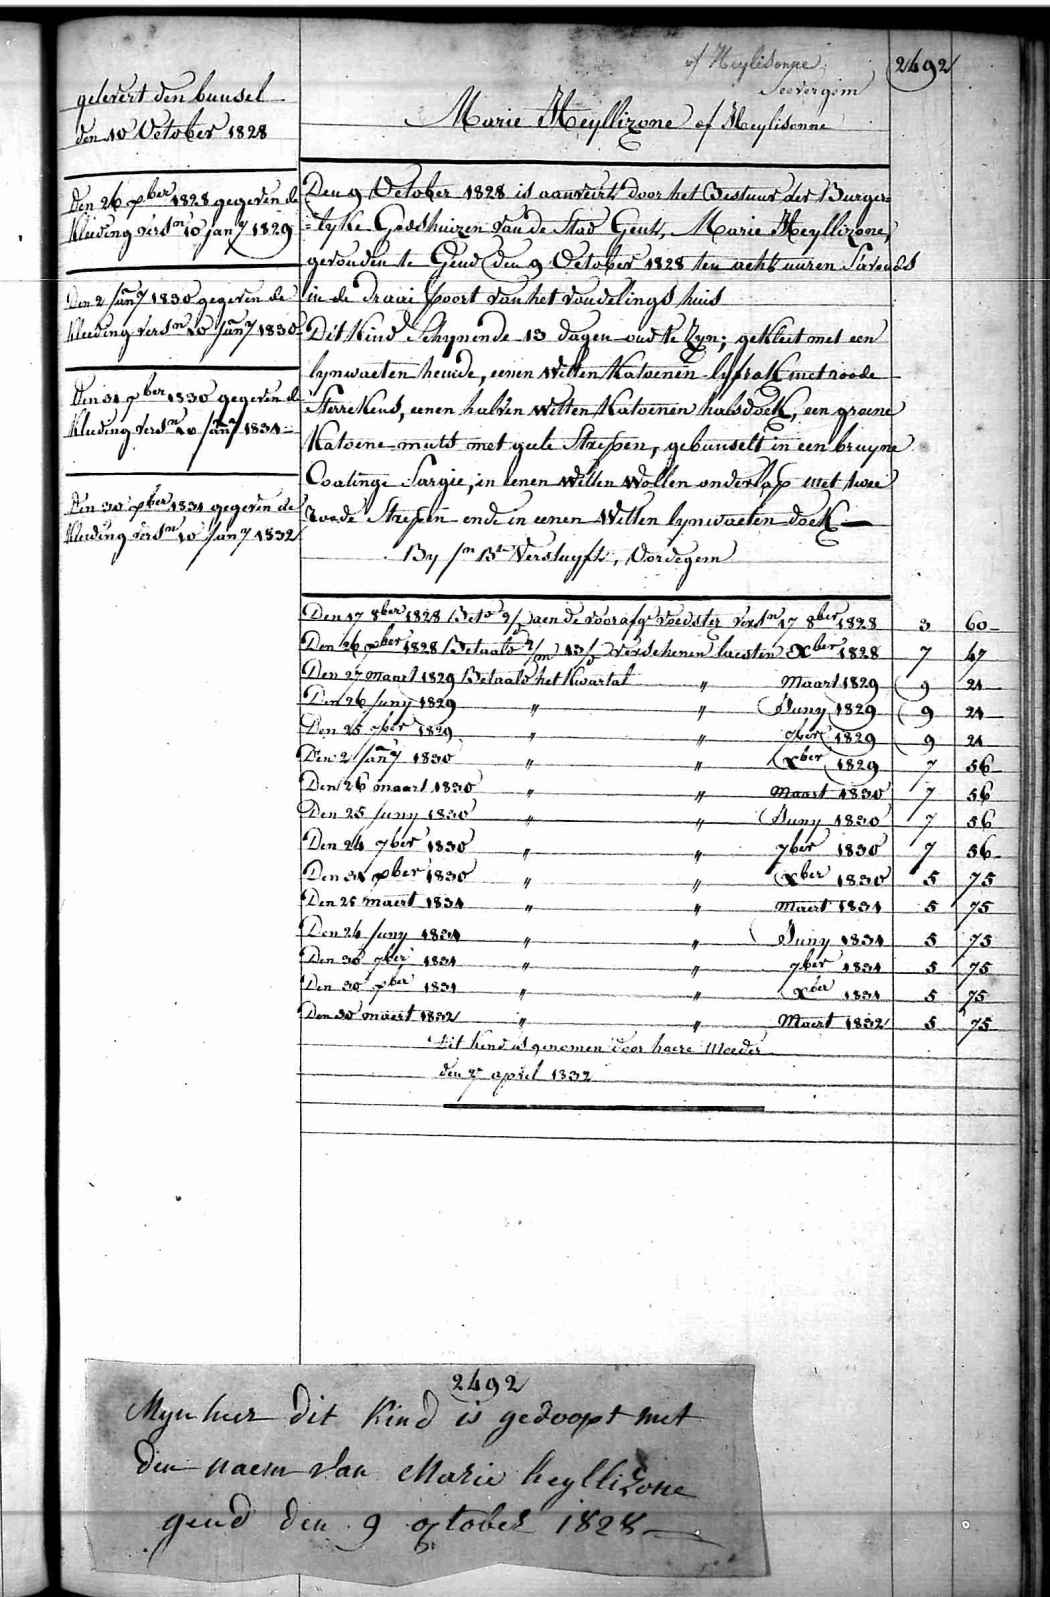 of Heylisonne
2492
Seevergem
Marie Heyllizone of Heylisonne
gelevert den bunsel
den 10 October 1828
Den 26 xber 1828 gegeven de
Kleeding versn 10 jany 1829
Den 2 Jany 1830 gegeven de
Kleeding versn 10 Jany 1830
Den 31 xber 1830 gegeven de
Kleeding versn 10 Jany 1831
Den 30 xber 1831 gegeven de
Kleeding versn 10 Jany 1832
Den 9 October 1828 is aanveirt door het Bestuur der Burger=
=lyke Godshuizen van de Stad Gent, Marie Heyllizone,
gevonden te Gend den 9 October 1828 ten acht uuren S'avonds
in de draai poort van het vondelings huis
Dit Kind Schynende 13 dagen oud te Zyn; gekleet met een
lynwaeten hemde, eenen Witten Katoenen lyfrok met roode
Sterrekens, eenen halven Witten Katoenen halsdoek, een groene
Katoene muts met geele Strepen, gebunselt in een bruyne
Coatinge Sargie, in eenen Witten Wollen onderlap met twee
Roode Strepen ende in eenen Witten lynwaeten doek
By Jn Bte Versluyft, Oordegem
Den 17 8ber 1828 Beto aen de voorafge voedster versn 17 8ber 1828 3 60
Den 26 xber 1828 Betaald verschenen laesten Xber 1828 7 47
Den 27 maart 1829 Betaald het Kwartal " Maart 1829 9 21
Den 26 Juny 1829 " " Juny 1829 9 21
Den 25 7ber 1829 " " 7ber 1829 9 21
Den 2 Jany 1830 " " Xber 1829 7 56
Den 26 maart 1830 " " Maart 1830 7 56
Den 25 Juny 1830 " " Juny 1830 7 56
Den 24 7ber 1830 " " 7ber 1830 7 56
Den 31 xber 1830 " " Xber 1830 5 75
Den 25 maert 1831 " " Maert 1831 5 75
Den 24 Juny 1831 " " Juny 1831 5 75
Den 30 7ber 1831 " " 7ber 1831 5 75
Den 30 xber 1831 " " Xber 1831 5 75
Den 30 maert 1832 " " Maert 1832 5 75
Dit kind is genomen door haere Moeder
den 27 april 1832
2492
Myn heer dit Kind is gedoopt met
den naem van Marie heyllizone
gend den 9 october 1828